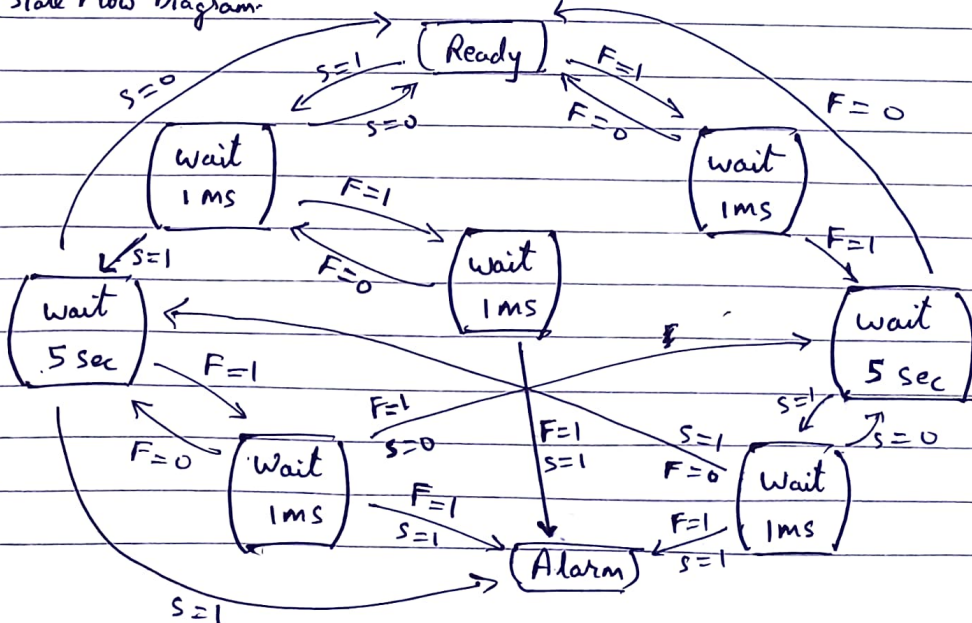 State Flow Diagram-
Ready
S=1
F=1
S=0
S=0
F=0
F=0
wait
1 ms
wait
1ms
F=1
F=0
S=1
F=1
wait
1ms
wait
5 sec
wait
5 sec
F=1
F=0
F=1
S=0
F=1
S=1
S=1
F=0
S=1
S=0
Wait
1ms
Wait
1ms
F=1
S=1
F=1
S=1
Alarm
S=1